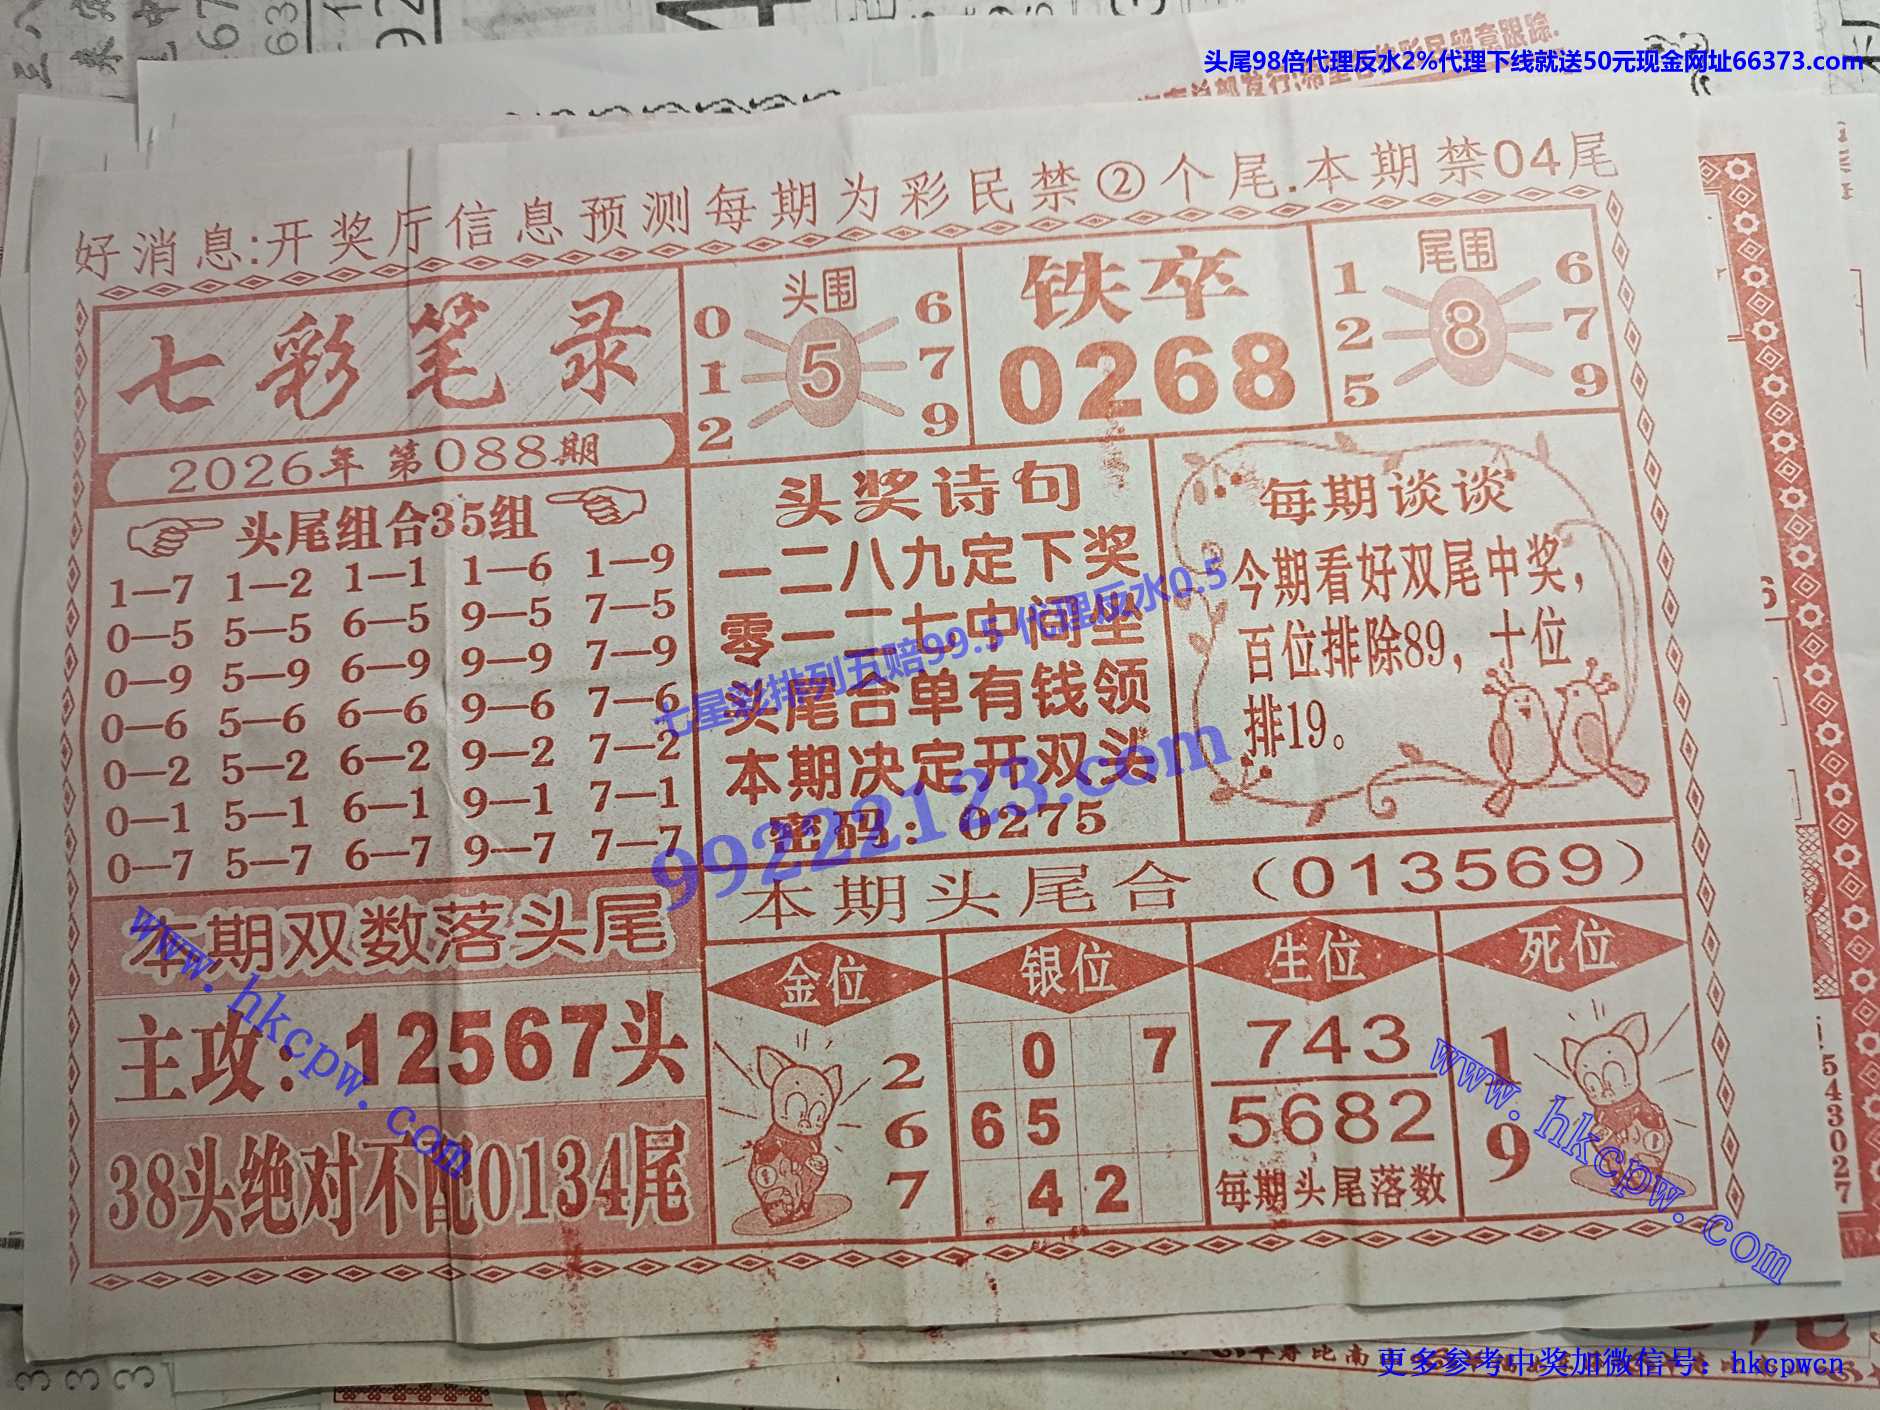 头尾98倍代理反水2%代理下线就送50元现金网址66373.com
好消息:开奖厅信息预测每期为彩民禁②个尾.本期禁04尾
七彩笔录
2026年 第088期
头围
0 6
1 5 7
2 9
铁卒
0268
尾围
1 6
2 8 7
5 9
头尾组合35组
1—7 1—2 1—1 1—6 1—9
0—5 5—5 6—5 9—5 7—5
0—9 5—9 6—9 9—9 7—9
0—6 5—6 6—6 9—6 7—6
0—2 5—2 6—2 9—2 7—2
0—1 5—1 6—1 9—1 7—1
0—7 5—7 6—7 9—7 7—7
头奖诗句
一二八九定下奖
零一二七中间坐
头尾合单有钱领
本期决定开双头
密码：0275
每期谈谈
今期看好双尾中奖，
百位排除89，十位
排19。
七星彩排列五赔99.5 代理反水0.5
99222123.com
本期头尾合（013569）
本期双数落头尾
主攻：12567头
38头绝对不配0134尾
金位
2
6
7
银位
0 7
6 5
4 2
生位
743
5682
每期头尾落数
死位
1
9
www.hkcpw.com
www.hkcpw.com
543027
更多参考中奖加微信号：hkcpwcn